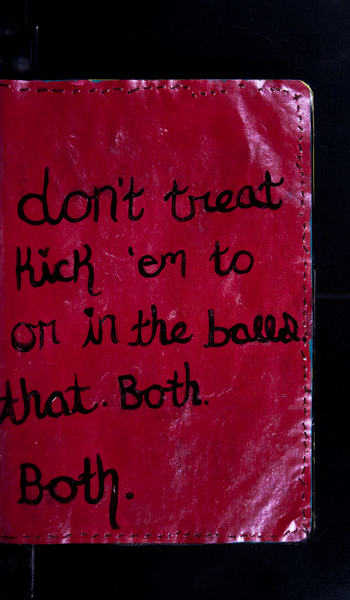 don't treat
kick 'em to
or in the balls
that. Both.
Both.